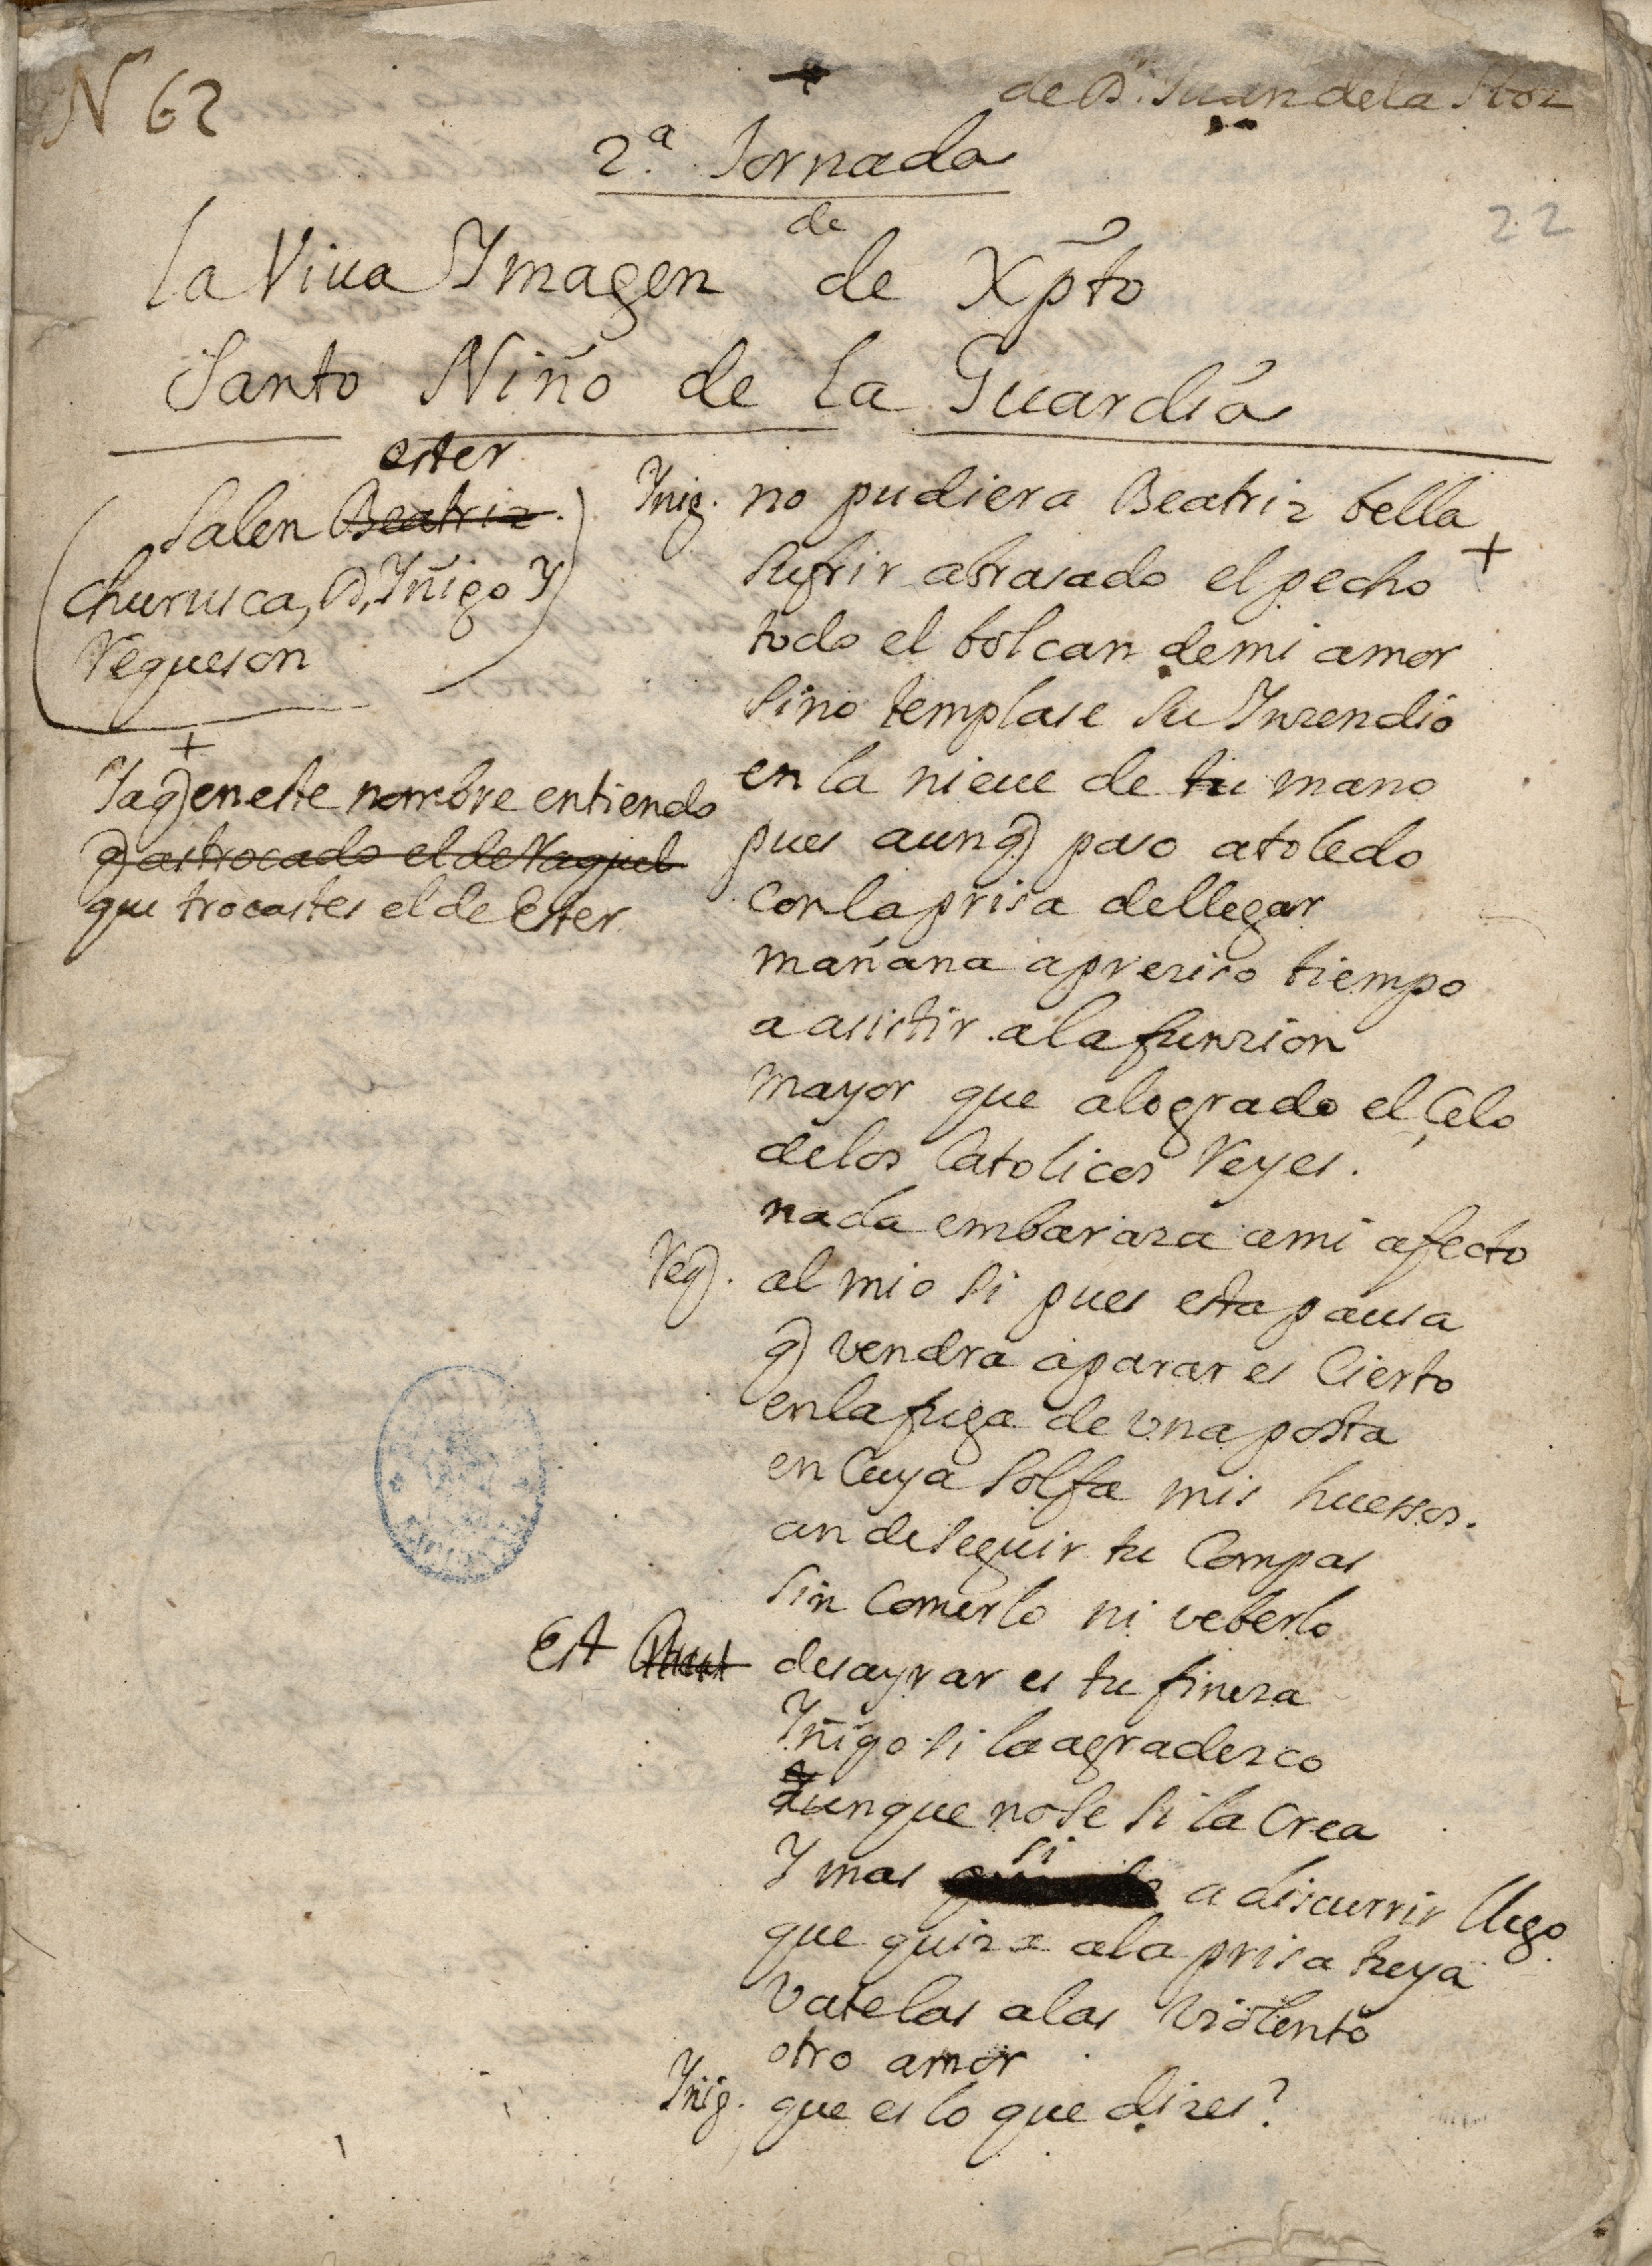 N 62
de D.n Juan de la Hoz
22
2.ª Jornada
de
La Viua Ymagen de Xpto
Santo Niño de la Guardia
ester
Salen Beatriz.
Churusca, D, Yñigo Y
Requeson
Ynig. no pudiera Beatriz bella
sufrir abrasado el pecho +
todo el bolcan de mi amor
sino templase su Yncendio
en la nieue de tu mano
pues aunq paso a toledo
con la prisa de llegar
mañana apreciso tiempo
a asistir a la funzion
mayor que a logrado el Celo
de los Catolicos Reyes.
nada embaraza a mi afecto
+
Ya q en este nombre entiendo
q as trocado el de Raquel
que trocastes el de Ester
Req. al mio si pues esta pausa
q vendra a parar es Cierto
en la fuga de vna posta
en Cuya solfa mis huessos.
an de seguir tu Compas
sin Comerlo ni veberlo
Est desayrar es tu fineza
Yñigo si la agradezco
aunque no se si la Crea
si
Y mas a discurrir llego
que quiza a la prisa tuya
vate las alas violento
otro amor
Yñig. que es lo que dizes?